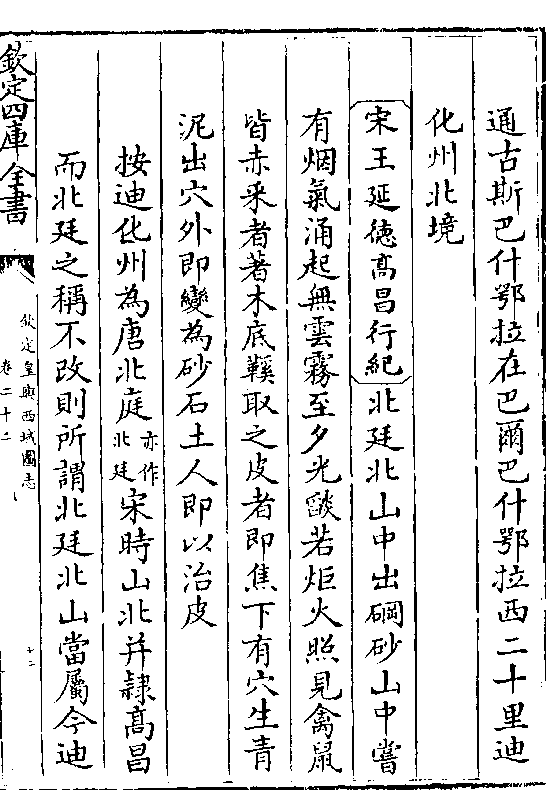 通古斯巴什鄂拉在巴爾巴什鄂拉西二十里迪
化州北境
宋王延徳髙昌行紀北廷北山中出硇砂山中嘗
有烟氣涌起無雲霧至夕光燄若炬火照見禽鼠
皆赤采者著木底鞵取之皮者即焦下有穴生青
泥出穴外即變為砂石土人即以治皮
按迪化州為唐北庭亦作北廷宋時山北并隷髙昌
而北廷之稱不改則所謂北廷北山當屬今迪
欽定四庫全書
欽定皇輿西域圖志
卷二十二
十二